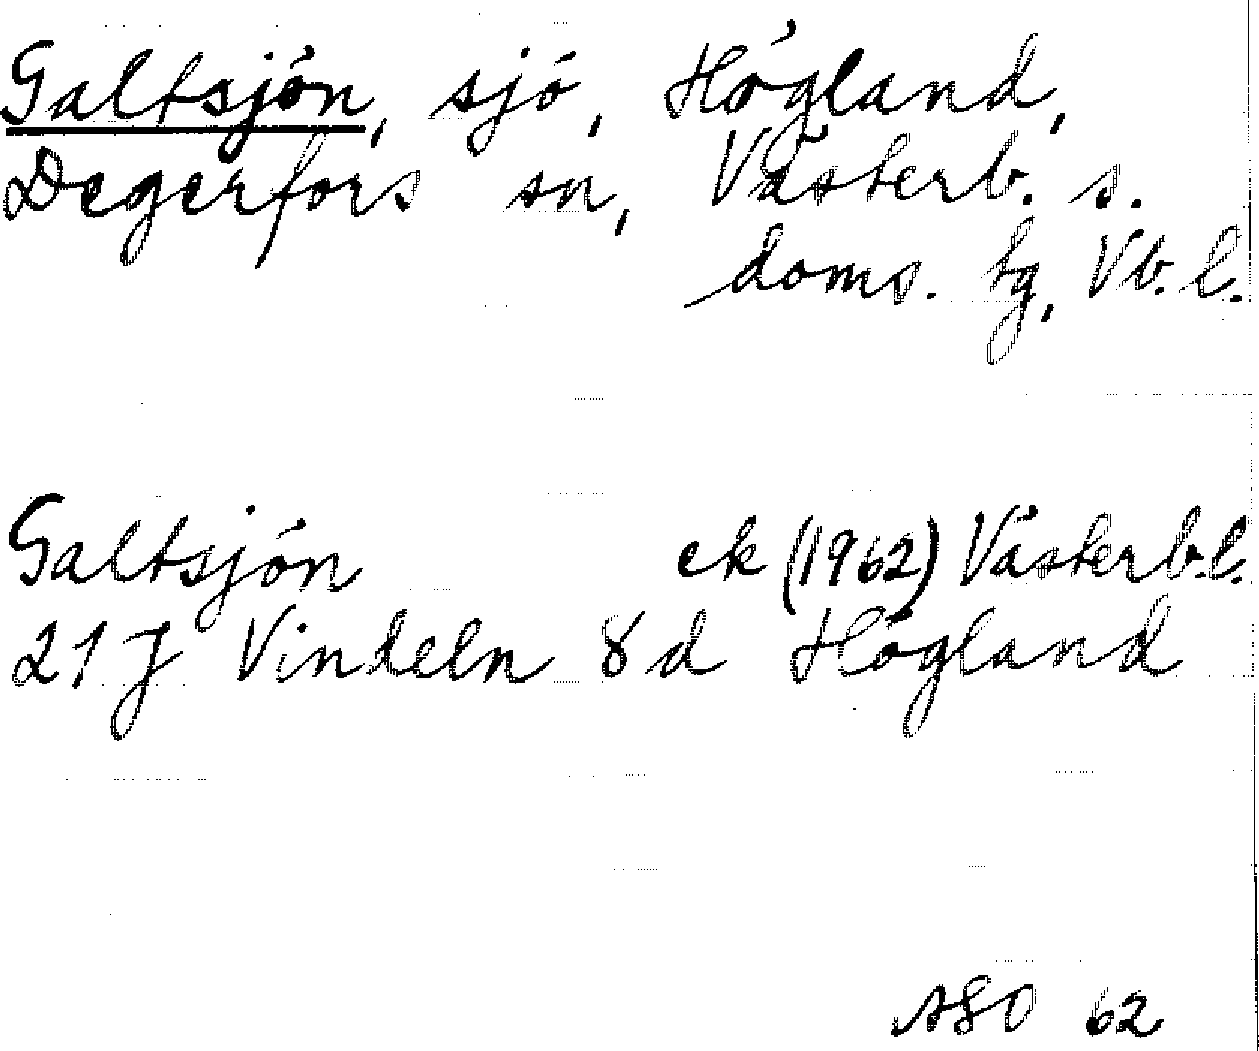 Galtsjön, sjö, Högland,
Degerfors sn, Västerb. s.
doms. tg, Vb. l.
Galtsjön ek (1962) Västerb.l.
21 J Vindeln 8 d Högland
ASO 62